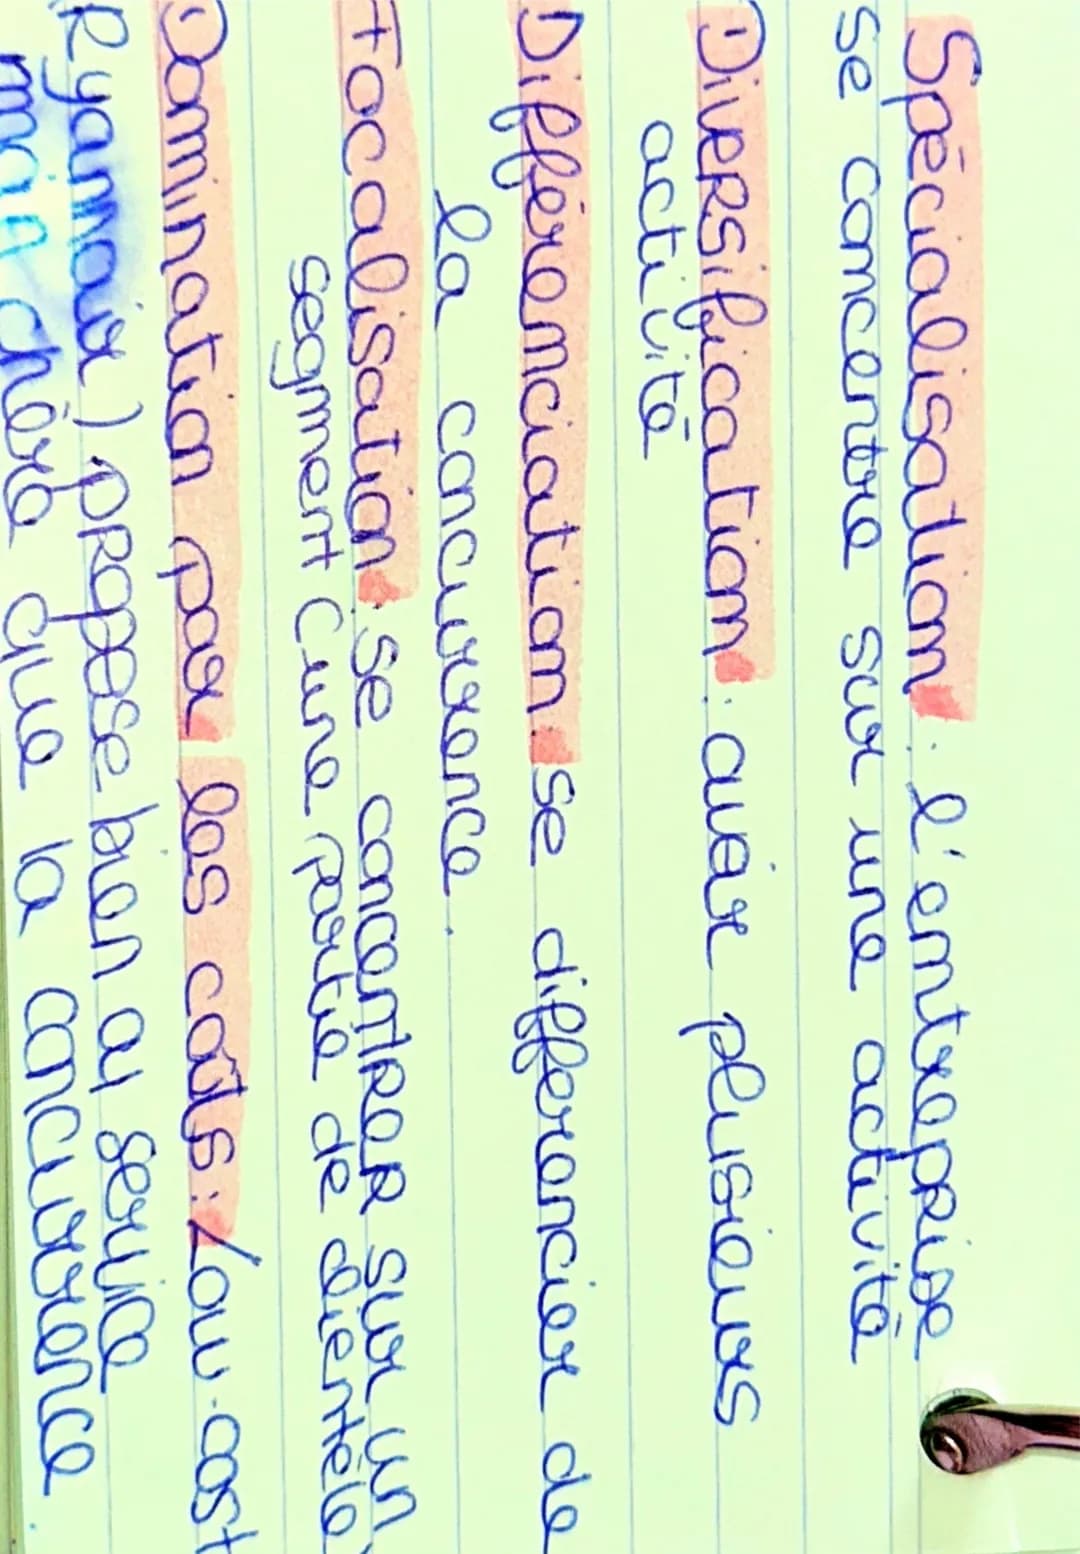 Spécialisation : l'entreprise
se concentre sur une activité
Diversification : avoir plusieurs
activité
Différenciation : se différencier de
la concurrence.
Focalisation : se concentrer sur un
segment (une partie de clientèle)
Domination par les coûts : Low-cost
Ryannair) propose bien ou service
moin chère que la concurrence.